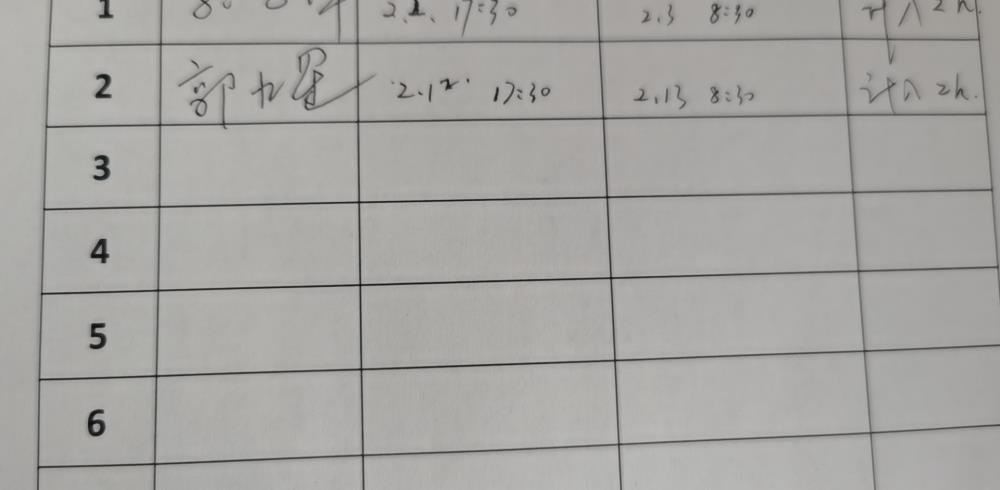 1 2.2. 17:30 2.3 8:30 计入2h.
2 2.12. 17:30 2.13 8:30 计入2h.
3
4
5
6